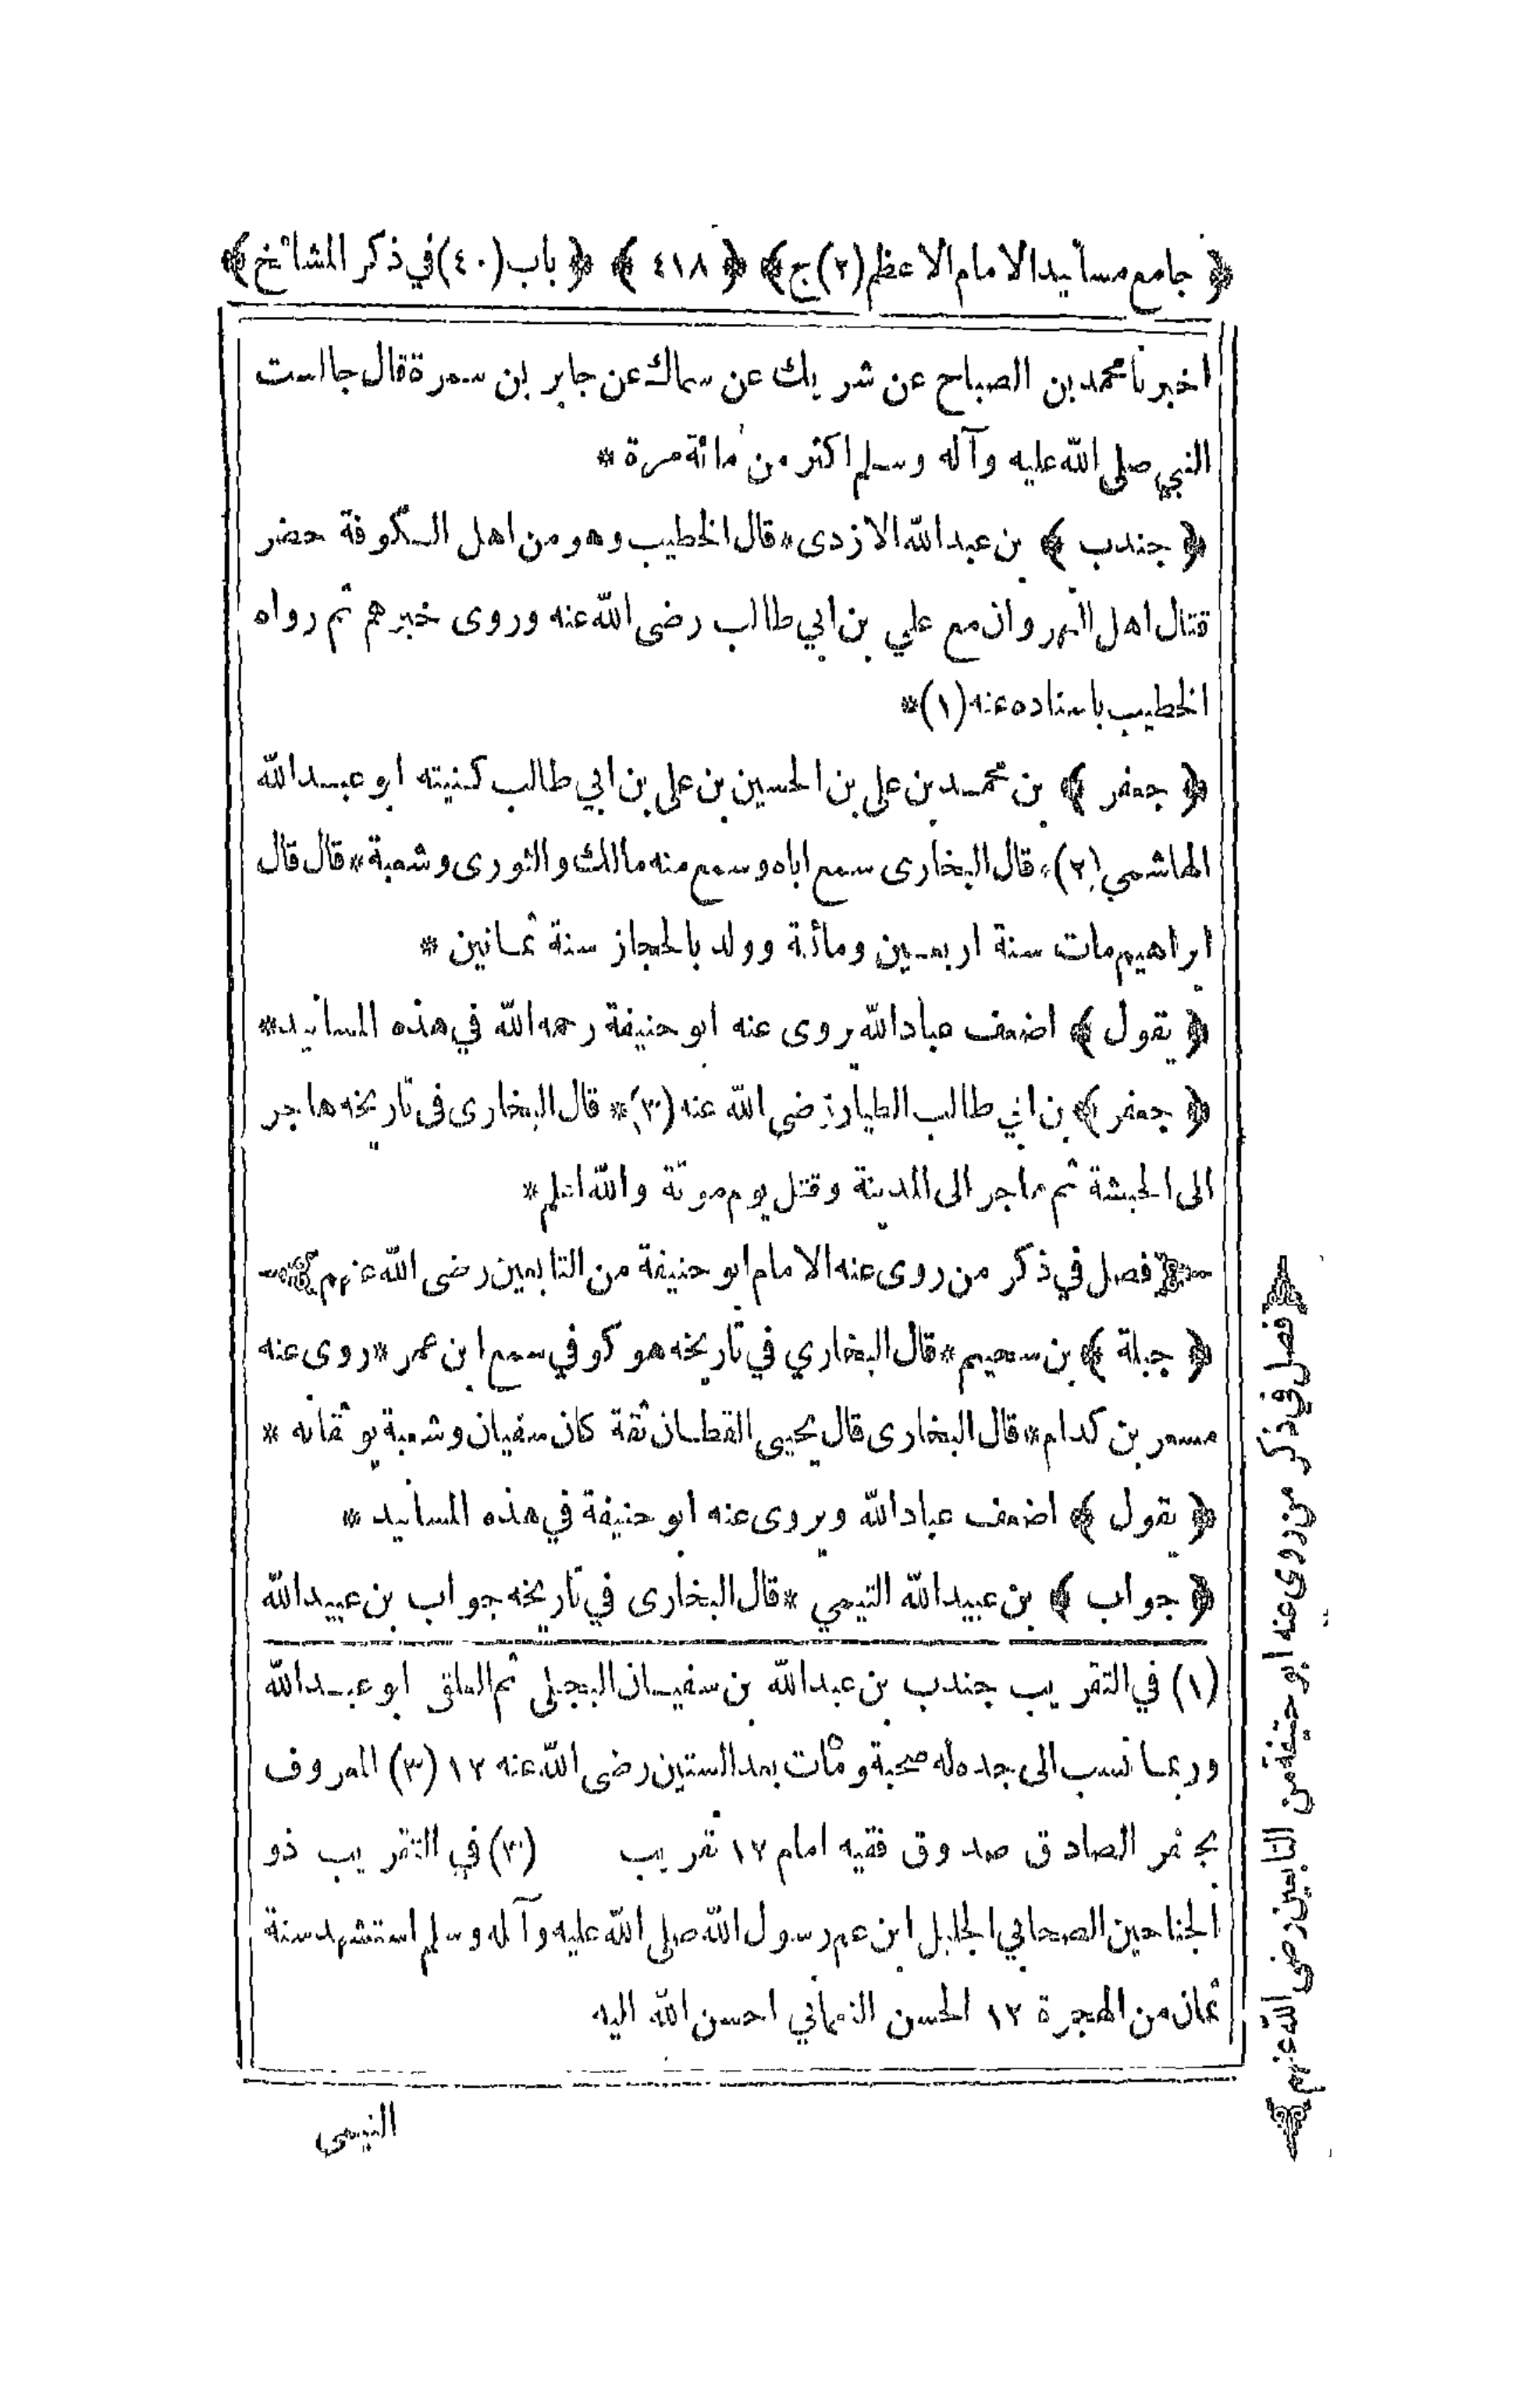 ﴿ جامع مسانيد الامام الاعظم (٢) ج ﴾ ﴿ ٤١٨ ﴾ ﴿ باب (٤٠) في ذكر المشائخ ﴾
اخبرنا محمد بن الصباح عن شريك عن سماك عن جابر بن سمرة قال جالست
النبي صلى الله عليه وآله وسلم اكثر من مائة مرة *
﴿ جندب ﴾ بن عبد الله الازدى * قال الخطيب وهو من اهل الكوفة حضر
قتال اهل النهروان مع علي بن ابي طالب رضى الله عنه وروى خبرهم ثم رواه
الخطيب باسناده عنه (١) *
﴿ جعفر ﴾ بن محمد بن على بن الحسين بن على بن ابي طالب كنيته ابو عبد الله
الهاشمي (٢) * قال البخارى سمع اباه وسمع منه مالك والثورى وشعبة * قال قال
ابراهيم مات سنة اربعين ومائة وولد بالحجاز سنة ثمانين *
﴿ يقول ﴾ اضعف عباد الله يروى عنه ابو حنيفة رحمه الله في هذه المسانيد *
﴿ جعفر ﴾ بن ابي طالب الطيار رضى الله عنه (٣) * قال البخارى فى تاريخه هاجر
الى الحبشة ثم هاجر الى المدينة وقتل يوم موتة والله اعلم *
﴿ فصل في ذكر من روى عنه الامام ابو حنيفة من التابعين رضى الله عنهم ﴾
﴿ جبلة ﴾ بن سحيم * قال البخاري في تاريخه هو كوفي سمع ابن عمر * روى عنه
مسعر بن كدام * قال البخارى قال يحيى القطان ثقة كان سفيان وشعبة يوثقانه *
﴿ يقول ﴾ اضعف عباد الله ويروى عنه ابو حنيفة في هذه المسانيد *
﴿ جواب ﴾ بن عبيد الله التيمي * قال البخارى في تاريخه جواب بن عبيد الله
(١) في التقريب جندب بن عبد الله بن سفيان البجلى ثم العلقى ابو عبد الله
وربما نسب الى جده له صحبة ومات بعد الستين رضى الله عنه ١٢ (٢) المعروف
بجعفر الصادق صدوق فقيه امام ١٢ تقريب (٣) في التقريب ذو
الجناحين الصحابي الجليل ابن عم رسول الله صلى الله عليه وآله وسلم استشهد سنة
ثمان من الهجرة ١٢ الحسن النعماني احسن الله اليه
التيمى
فصل في ذكر من روى عنه ابو حنيفة من التابعين رضى الله عنهم